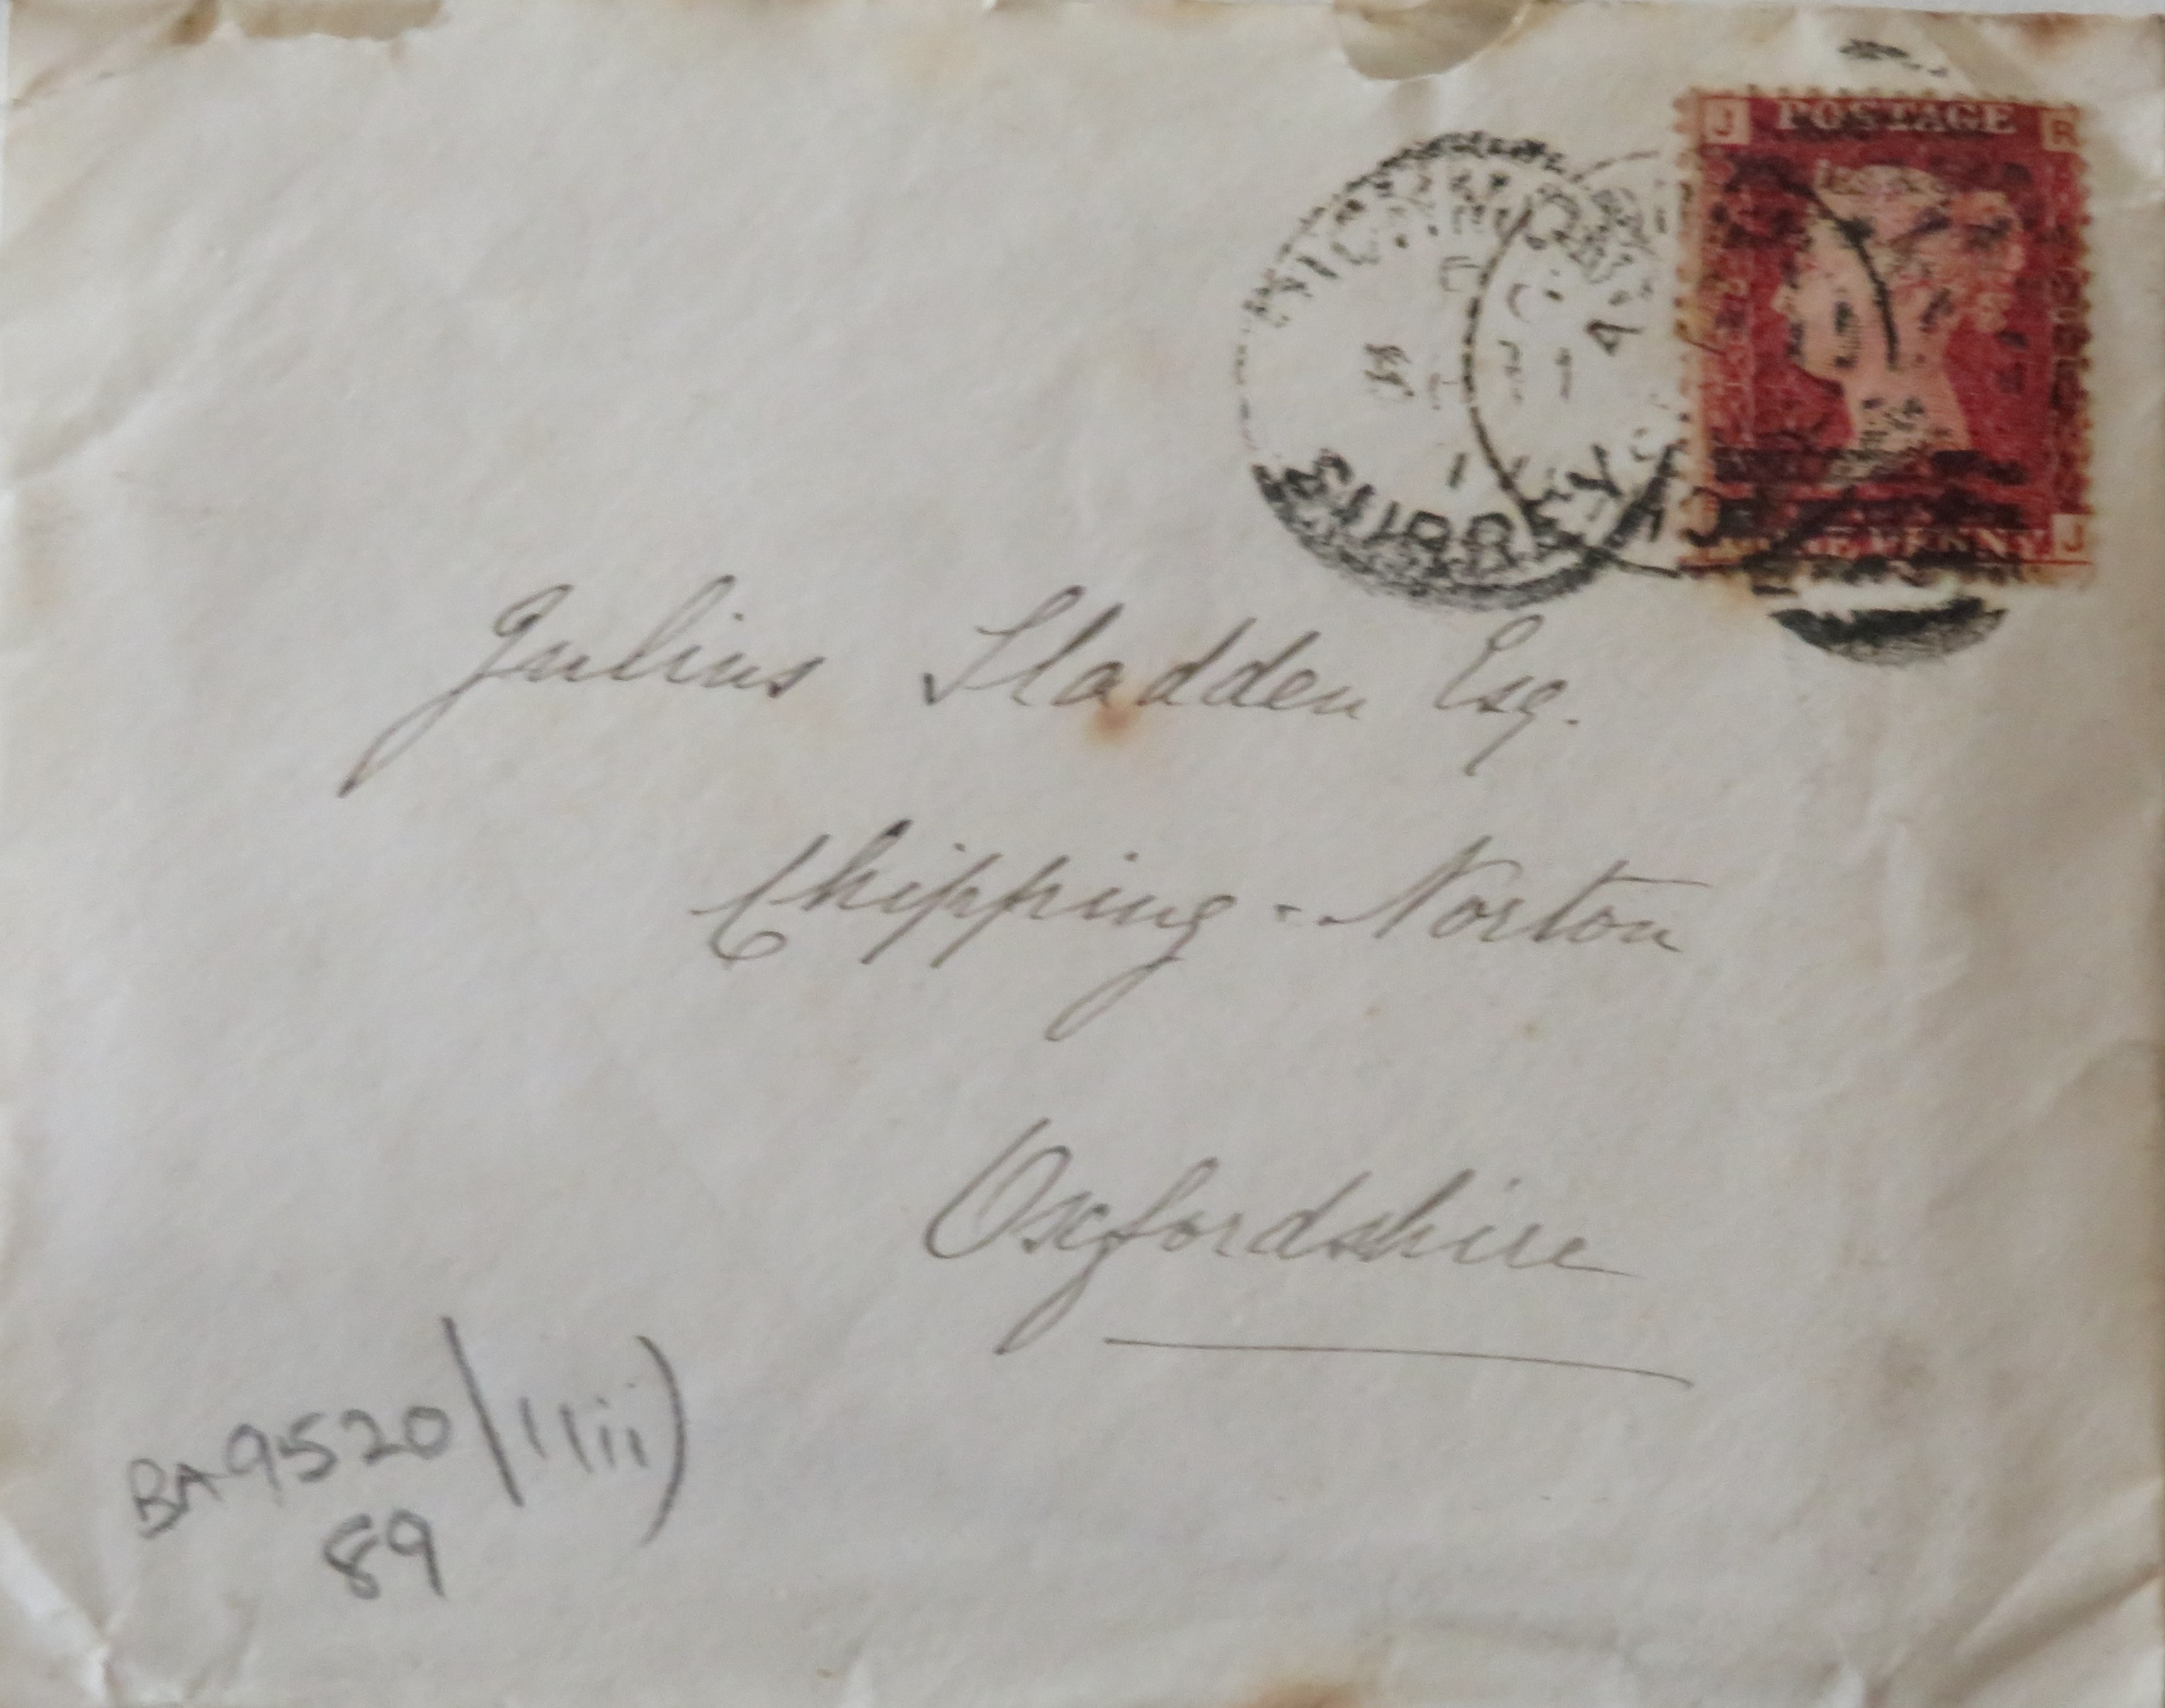 J POSTAGE R
ONE PENNY J
SURREY
Julius Sladden Esq.
Chipping-Norton
Oxfordshire
BA9520/1(iii)
89